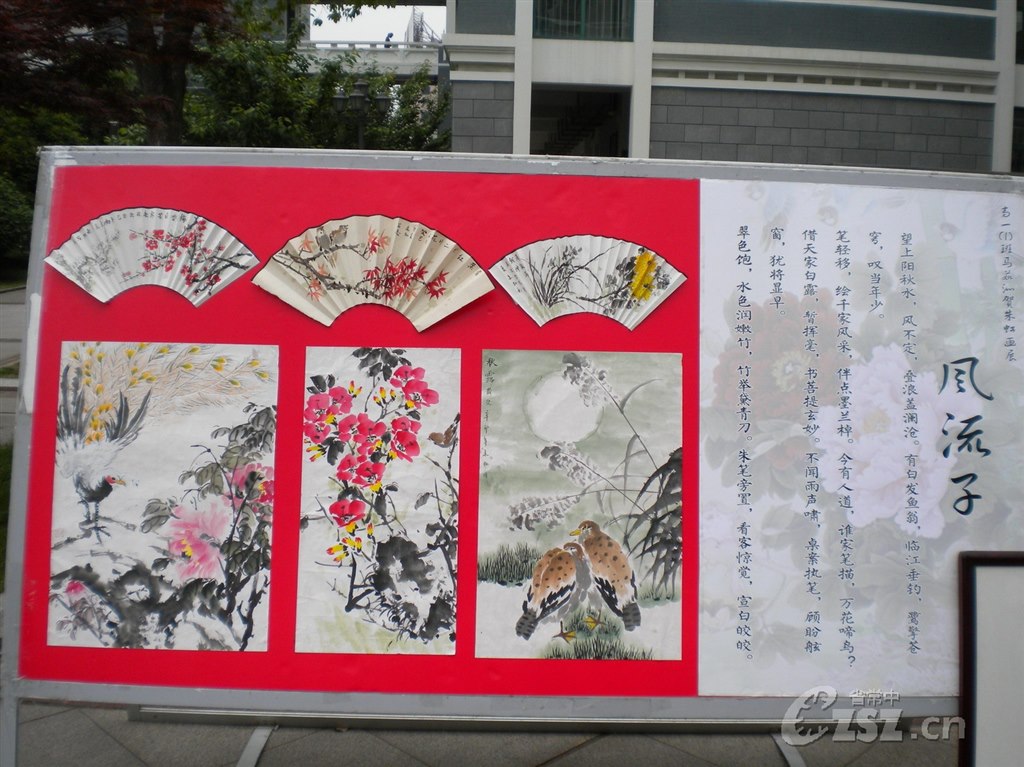 高一(1)班马磊磊贺朱虹画展
风流子
望上阳秋水，风不定，叠浪盖澜沧。有白发鱼翁，临江垂钓，鹭擎苍
穹，叹当年少。
笔轻移，绘千家风采，伴点墨兰棹。今有人道，谁家笔描，万花啼鸟？
借天家白露，暂挥毫，书菩提玄妙。不闻雨声啸，桌案执笔，顾盼舷
窗，犹将显早。
翠色饱，水色润嫩竹，竹举黛青刀。朱笔旁置，看客惊觉，宣白皎皎。
省常中
CZSZ.cn